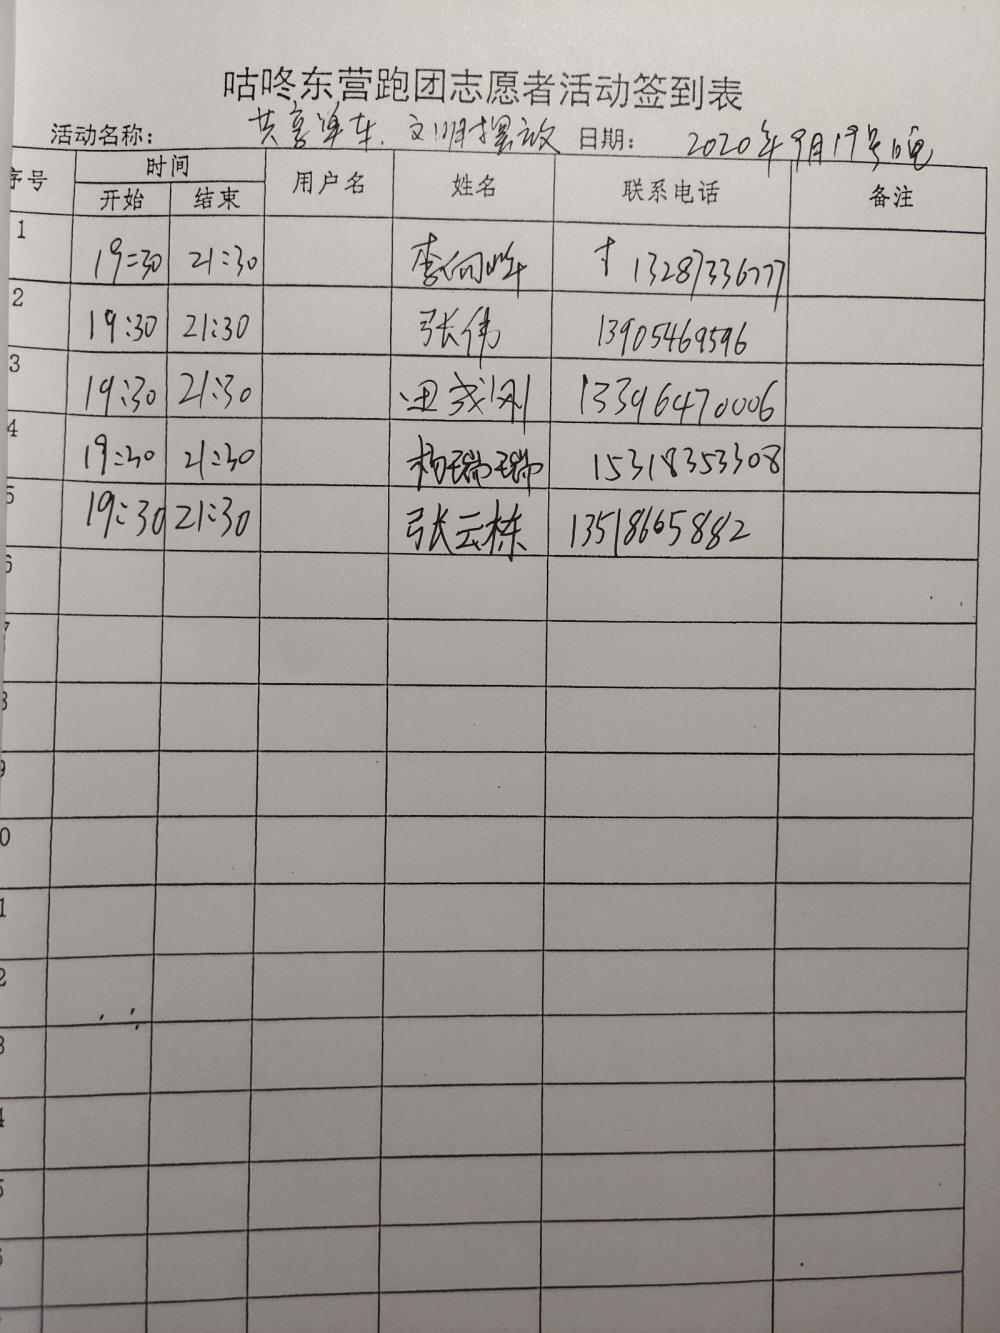 咕咚东营跑团志愿者活动签到表
活动名称: 共享单车.文明摆放 日期: 2020年9月19号晚
序号 时间 用户名 姓名 联系电话 备注
开始 结束
1 19:30 21:30 李向 13287336777
2 19:30 21:30 张伟 13905469596
3 19:30 21:30 田 刚 13396470006
4 19:30 21:30 杨瑞瑞 15318353308
5 19:30 21:30 张云栋 13518665882
6
7
8
9
0
1
2
3
4
5
6